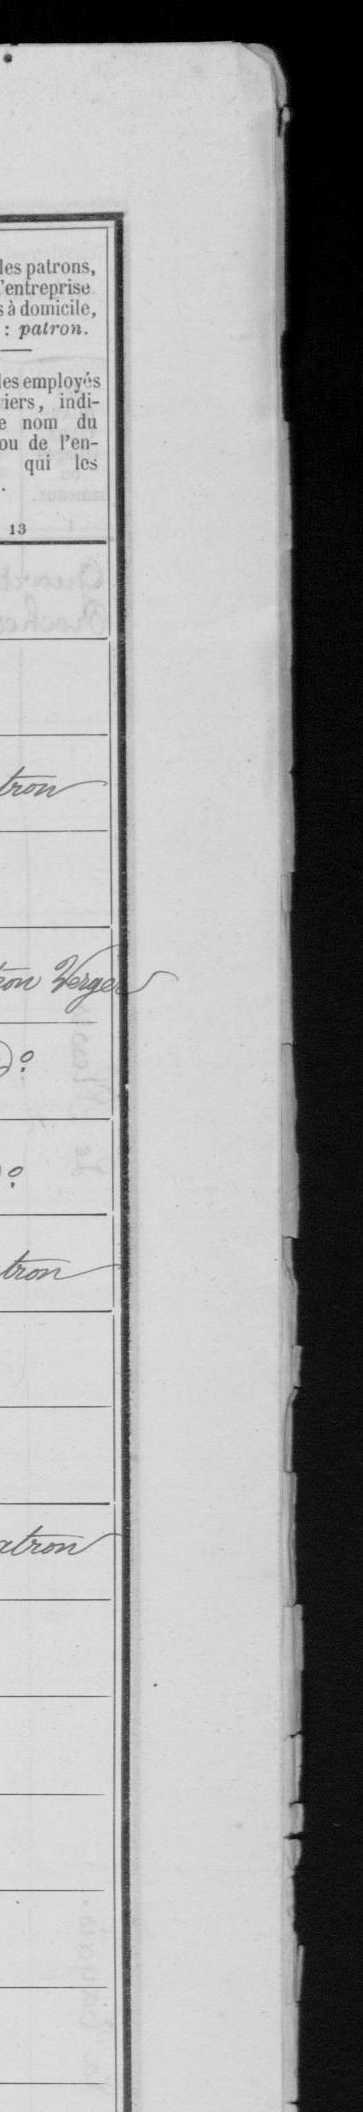 les patrons,
l'entreprise
s à domicile,
: patron.
les employés
riers, indi-
e nom du
ou de l'en-
qui les
.
13
tron
on Verger
D°
°
tron
atron